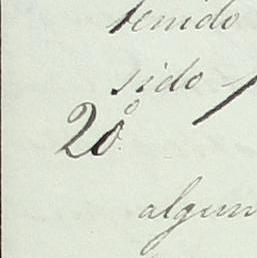 tenido
sido
20º
algun